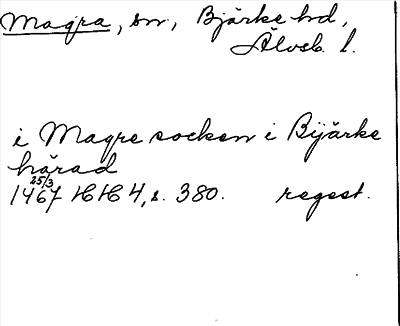 Magra, sn, Bjärke hd,
Älvsb. l.
i Magre socken i Bijärke
härad
25/3
1467 HH 4, s. 380. regest.